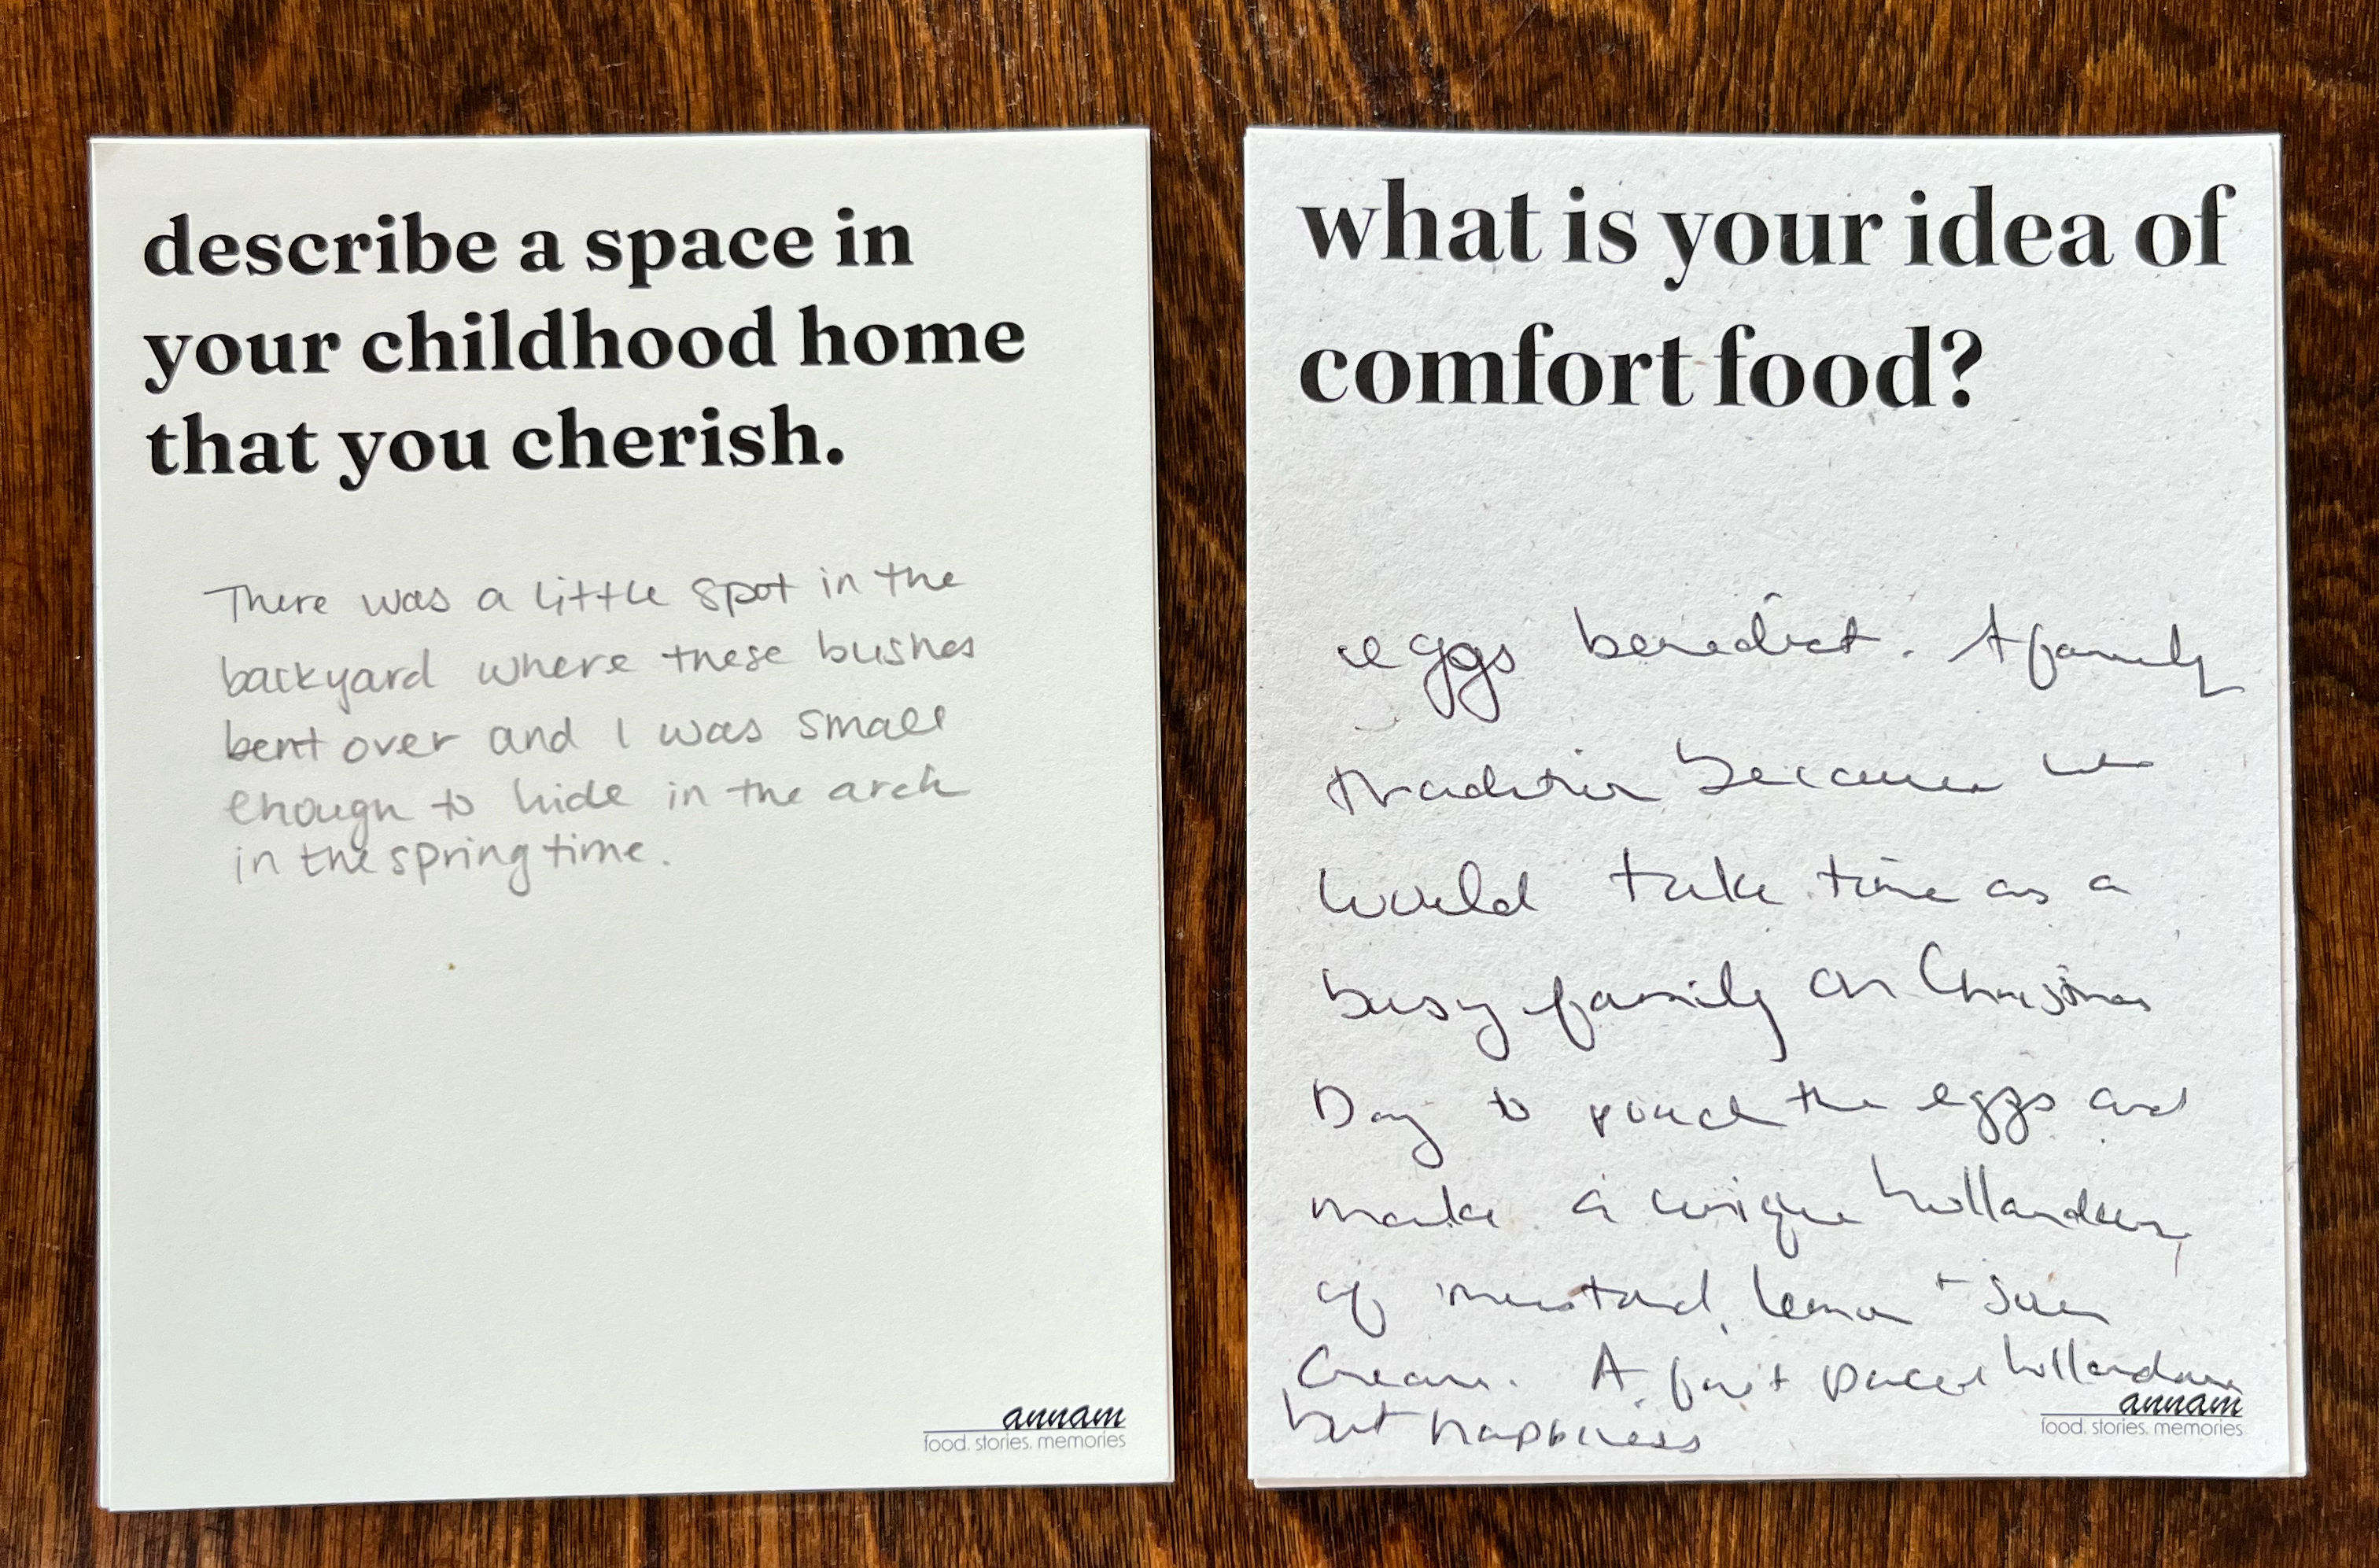 describe a space in
your childhood home
that you cherish.
There was a little spot in the
backyard where these bushes
bent over and I was small
enough to hide in the arch
in the springtime.
annam
food. stories. memories
what is your idea of
comfort food?
eggs benedict. A family
tradition because we
would take time as a
busy family on Christmas
Day to poach the eggs and
make a unique
of mustard, lemon + sour
Cream. A fast paced
but happiness
annam
food. stories. memories